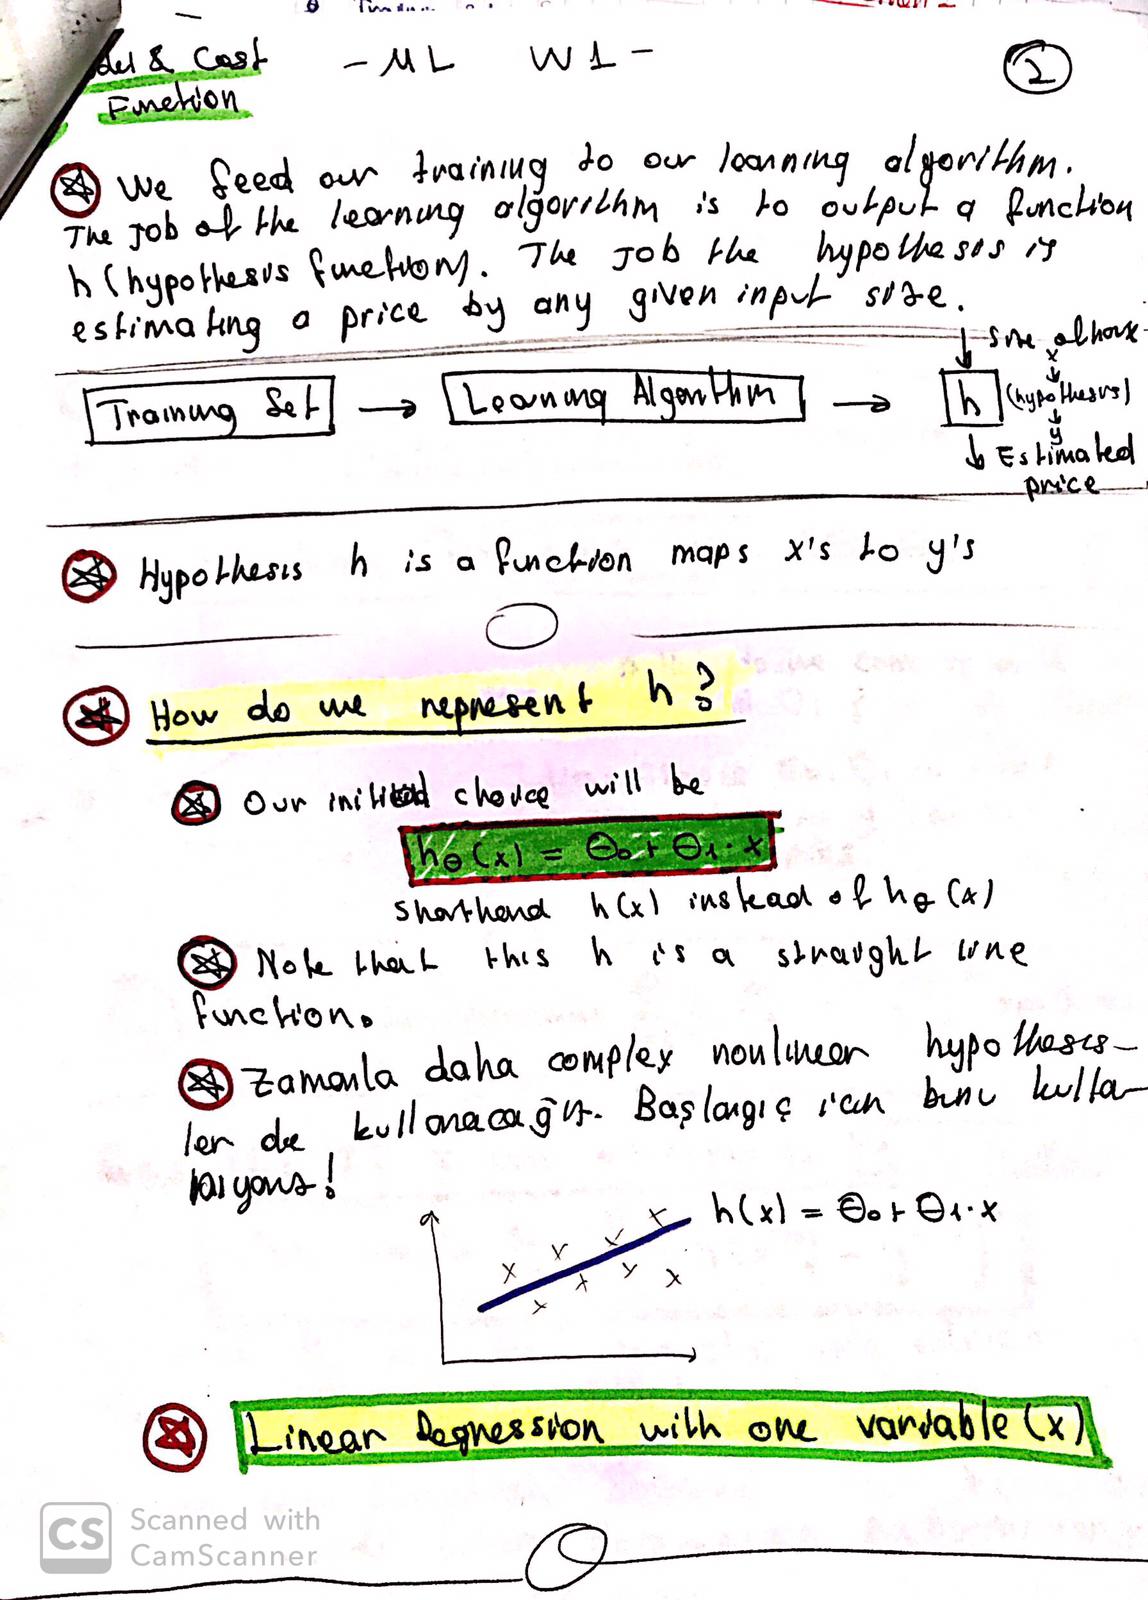 del & Cost
Function
- ML W1 -
2
We feed our training to our learning algorithm.
The job of the learning algorithm is to output a function
h (hypothesis function). The job the hypothesis is
estimating a price by any given input size.
Training Set → Learning Algorithm → h (hypothesis)
Size of house
x
y
Estimated
price
Hypothesis h is a function maps x's to y's
How do we represent h?
Our initial choice will be
hθ(x) = θ0 + θ1·x
shorthand h(x) instead of hθ(x)
Note that this h is a straight line
function.
Zamanla daha complex nonlinear hypothesis-
ler de kullanacağız. Başlangıç için bunu kulla-
nıyoruz!
h(x) = θ0 + θ1·x
Linear Regression with one variable (x)
CS
Scanned with
CamScanner